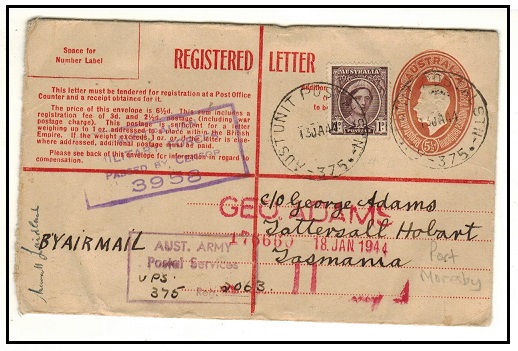 Space for
Number Label
REGISTERED LETTER
This letter must be tendered for registration at a Post Office
Counter and a receipt obtained for it.
The price of this envelope is 6½d. This sum includes a
registration fee of 3d. and 2½d. postage (including war
postage charge). This postage is sufficient for a letter
weighing up to 1 oz. addressed to place within the British
Empire. If the weight exceeds 1 oz. or letter is
where addressed, additional postage must be paid.
Please see back of this envelope for information in regard to
compensation.
PASSED BY CENSOR
3958
to be
AUSTRALIA
1D 1D
AUST UNIT POSTN
13 JA 44
375
AUSTRALIA
5½
375
BY AIR MAIL
GEO. ADAMS
C/o George Adams
Tattersall Hobart
Tasmania
18 JAN 1944
AUST. ARMY
Postal Services
UPS.
375 2063
Port
Moresby